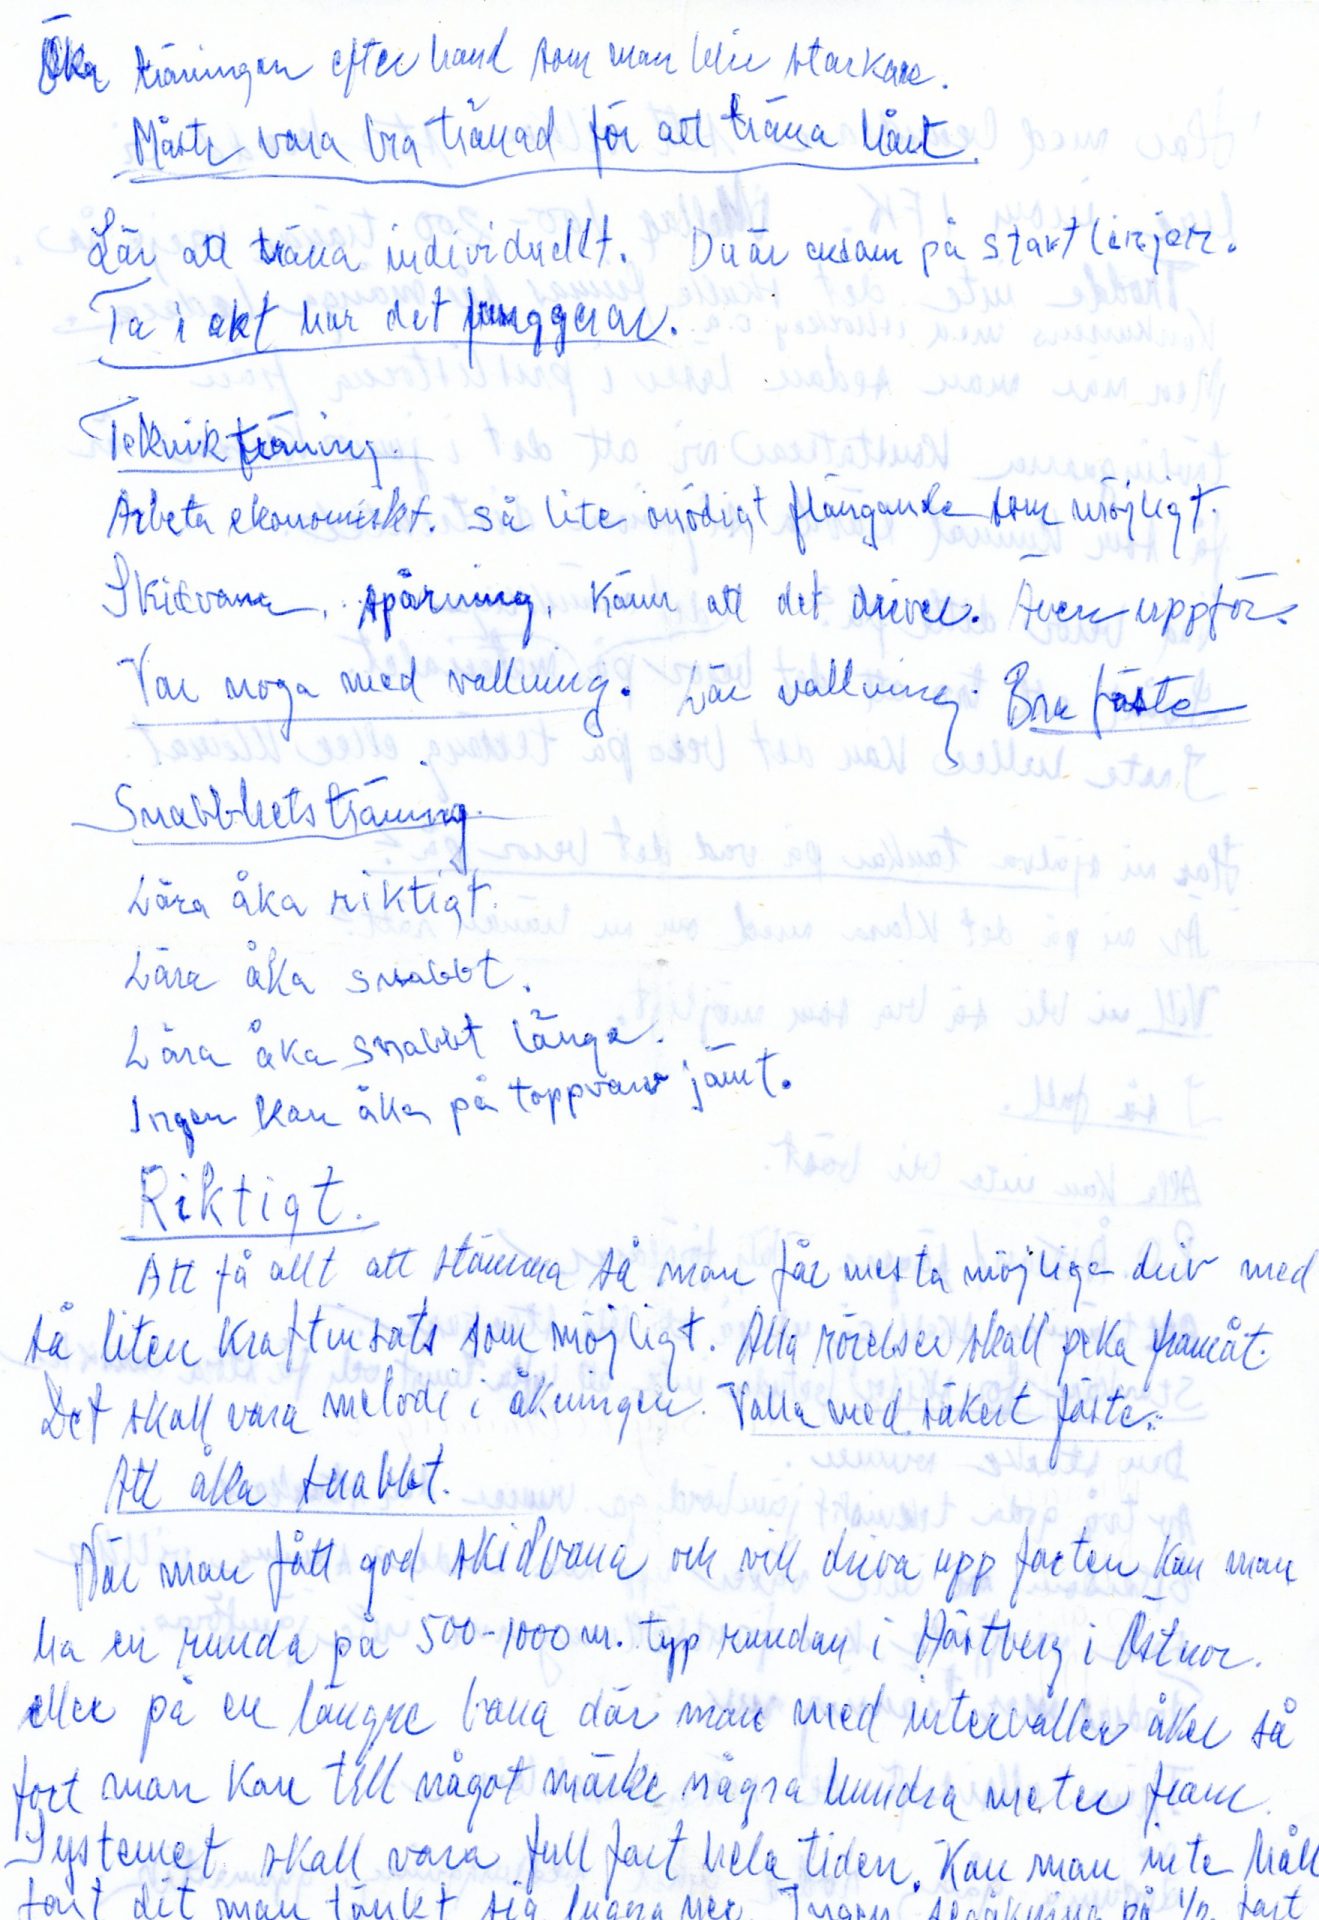 Öka träningen efter hand som man blir starkare.
Måste vara bra tränad för att träna hårt.
Lär att träna individuellt. Du är ensam på startlinjen.
Ta i akt hur det funggerar.
Teknikträning.
Arbeta ekonomiskt. så lite onödigt flängande som möjligt.
Skidvana, spårning, känn att det driver. Även uppför.
Var noga med vallning. Lär vallning. Bra fäste
Snabbhetsträning.
Lära åka riktigt.
Lära åka snabbt.
Lära åka snabbt länge.
Ingen kan åka på toppvarv jämt.
Riktigt.
Att få allt att stämma så man får mesta möjliga driv med
så liten kraftinsats som möjligt. Alla rörelser skall peka framåt.
Det skall vara melodi i åkningen. Valla med säkert fäste.
Att åka snabbt.
När man fått god skidvana och vill driva upp farten kan man
ha en runda på 500-1000 m. typ rundan i Hästberg i Östnor.
eller på en längre bana där man med intervaller åker så
fort man kan till något märke några hundra meter fram.
Systemet skall vara full fart hela tiden. Kan man inte håll
fart dit man tänkt sig lugna ner. Ingen på 1/2 fart